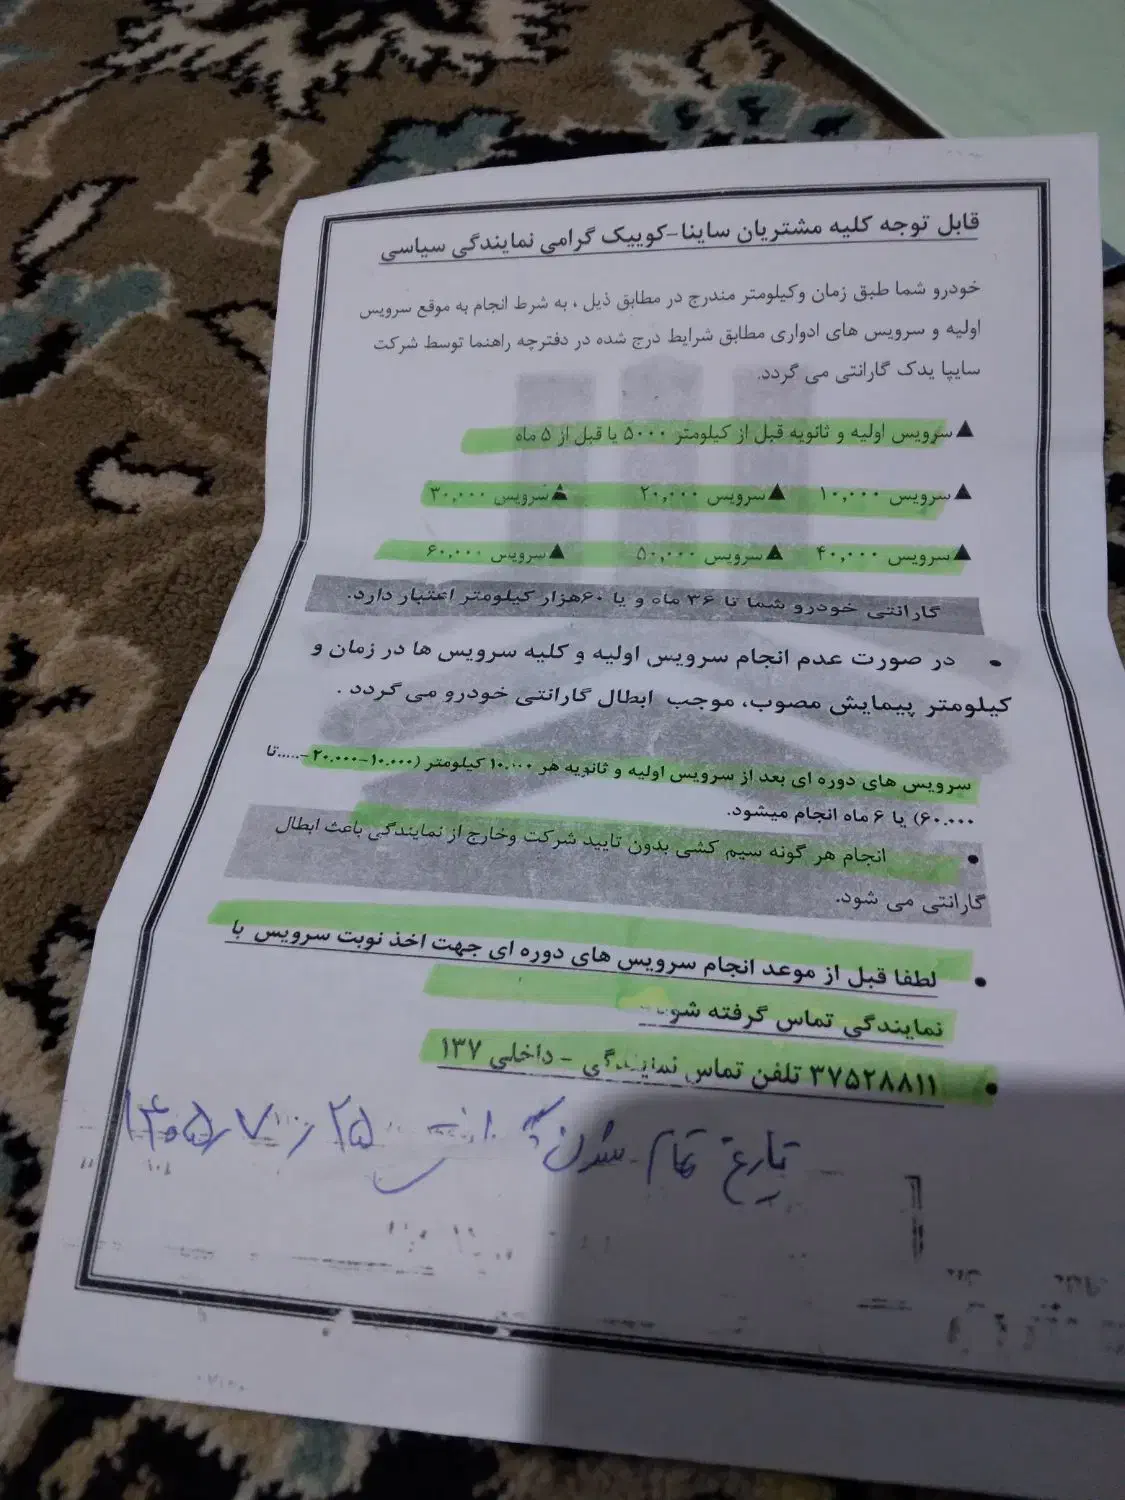 قابل توجه کلیه مشتریان ساینا-کوییک گرامی نمایندگی سیاسی
خودرو شما طبق زمان وکیلومتر مندرج در مطابق ذیل ، به شرط انجام به موقع سرویس
اولیه و سرویس های ادواری مطابق شرایط درج شده در دفترچه راهنما توسط شرکت
سایپا یدک گارانتی می گردد.
▲سرویس اولیه و ثانویه قبل از کیلومتر ۵۰۰۰ یا قبل از ۵ ماه
▲سرویس ۱۰,۰۰۰ ▲سرویس ۲۰,۰۰۰ ▲سرویس ۳۰,۰۰۰
▲سرویس ۴۰,۰۰۰ ▲سرویس ۵۰,۰۰۰ ▲سرویس ۶۰,۰۰۰
گارانتی خودرو شما تا ۳۶ ماه و یا ۶۰هزار کیلومتر اعتبار دارد.
• در صورت عدم انجام سرویس اولیه و کلیه سرویس ها در زمان و
کیلومتر پیمایش مصوب، موجب ابطال گارانتی خودرو می گردد .
سرویس های دوره ای بعد از سرویس اولیه و ثانویه هر ۱۰.۰۰۰ کیلومتر (۱۰.۰۰۰-۲۰.۰۰۰-.....تا
۶۰.۰۰۰) یا ۶ ماه انجام میشود.
• انجام هر گونه سیم کشی بدون تایید شرکت وخارج از نمایندگی باعث ابطال
گارانتی می شود.
• لطفا قبل از موعد انجام سرویس های دوره ای جهت اخذ نوبت سرویس با
نمایندگی تماس گرفته شود
• ۳۷۵۲۸۸۱۱ تلفن تماس نمایندگی - داخلی ۱۳۷
تاریخ تمام شدن ۲۵ ر ۷ ر ۱۴۰۵